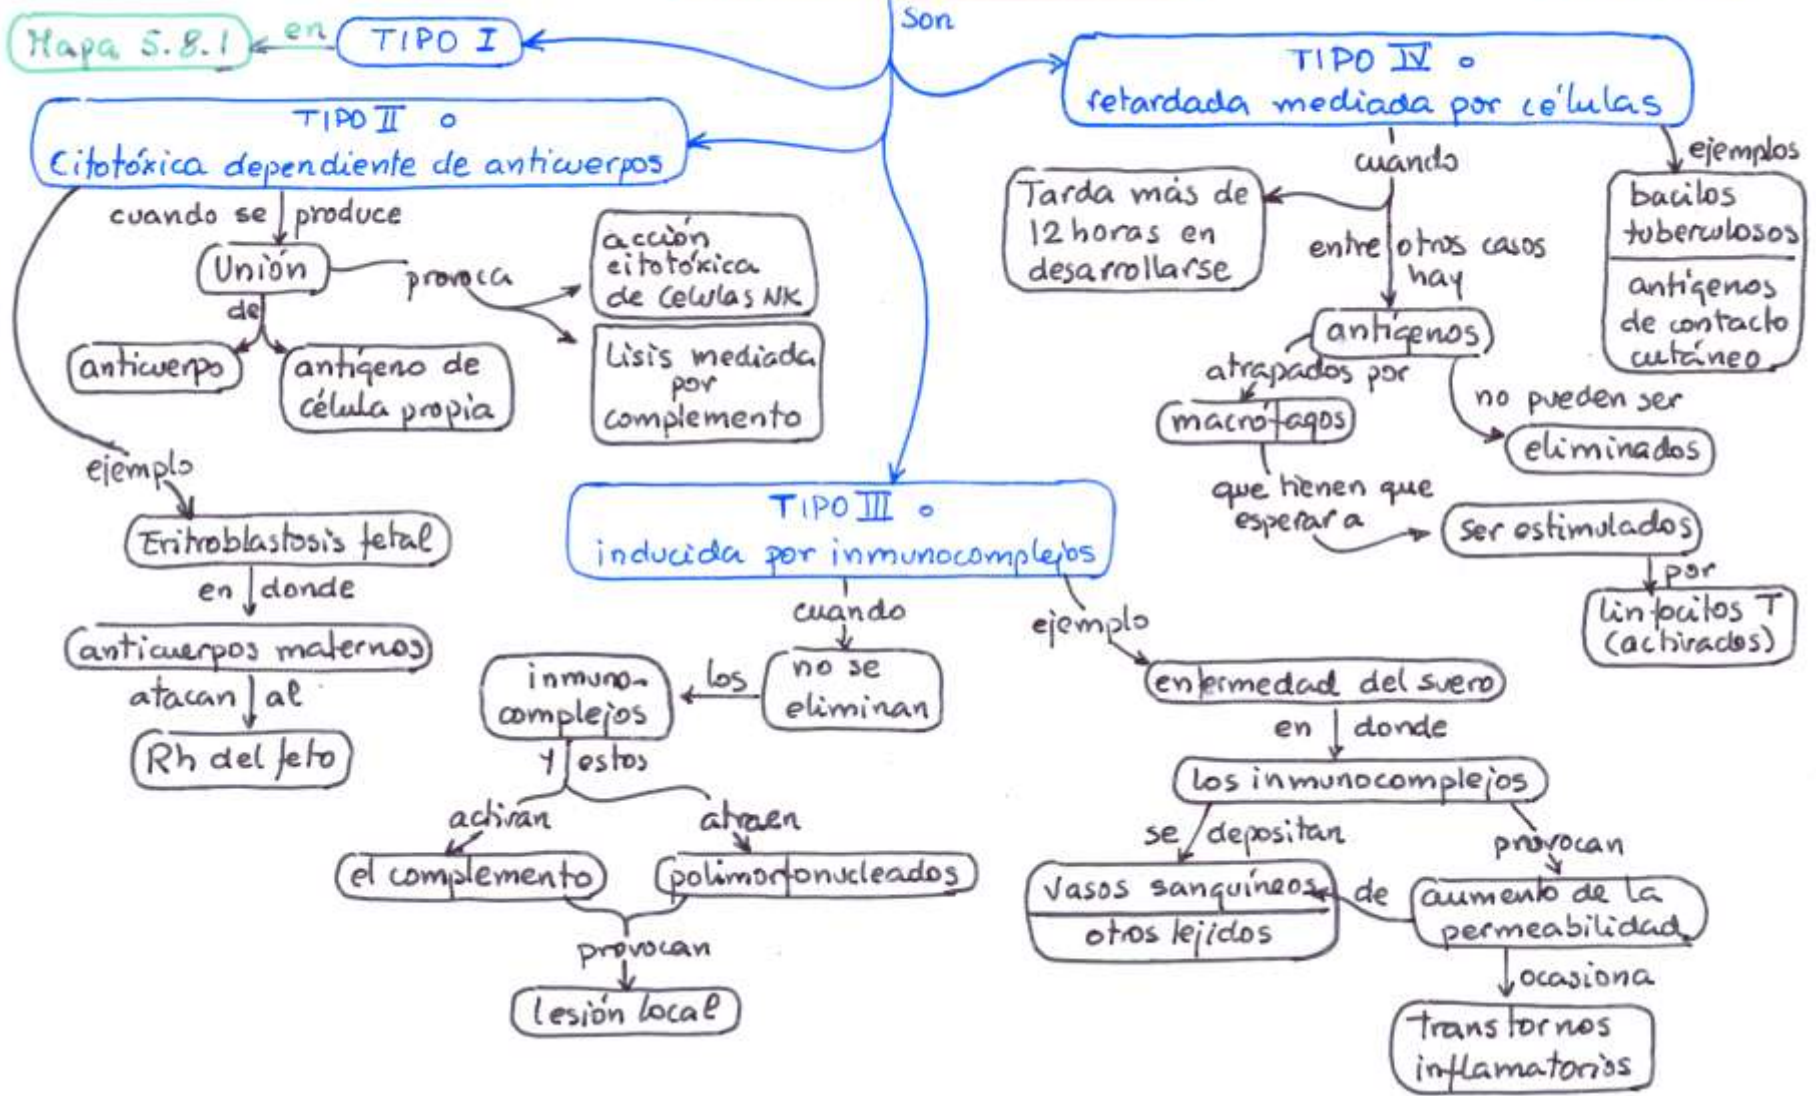 son
Mapa 5.8.1
en
TIPO I
TIPO IV o
retardada mediada por células
TIPO II o
Citotóxica dependiente de anticuerpos
cuando se produce
Unión
de
anticuerpo
antígeno de
célula propia
provoca
acción
citotóxica
de Celulas NK
Lisis mediada
por
complemento
ejemplo
Eritroblastosis fetal
en donde
anticuerpos maternos
atacan al
Rh del feto
TIPO III o
inducida por inmunocomplejos
cuando
no se
eliminan
los
inmuno-
complejos
y estos
activan
el complemento
atraen
polimorfonucleados
provocan
lesión local
ejemplo
enfermedad del suero
en donde
los inmunocomplejos
se depositan
vasos sanguíneos
otros tejidos
provocan
aumento de la
permeabilidad
de
ocasiona
transtornos
inflamatorios
cuando
Tarda más de
12 horas en
desarrollarse
entre otros casos
hay
antígenos
atrapados por
macrófagos
no pueden ser
eliminados
que tienen que
esperar a
ser estimulados
por
linfocitos T
(activados)
ejemplos
bacilos
tuberculosos
antígenos
de contacto
cutáneo